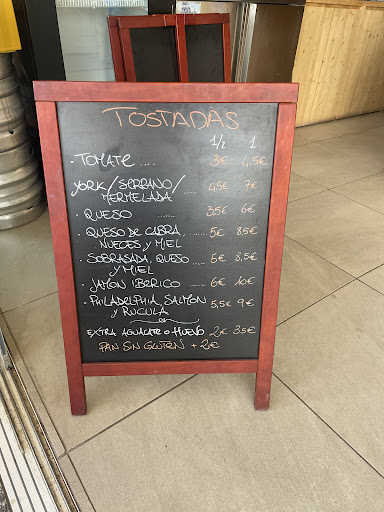 TOSTADAS
1/2 1
· TOMATE .... 3€ 4,5€
YORK / SERRANO / MERMELADA ...... 4,5€ 7€
· QUESO ....... 3,5€ 6€
· QUESO DE CABRA, NUECES, Y MIEL .. 5€ 8,5€
· SOBRASADA, QUESO Y MIEL .... 5€ 8,5€
· JAMÓN IBERICO .. 6€ 10€
· PHILADELPHIA, SALMÓN Y RUCULA 5,5€ 9€
EXTRA AGUACATE O HUEVO 2€ 3,5€
PAN SIN GLUTEN + 2€